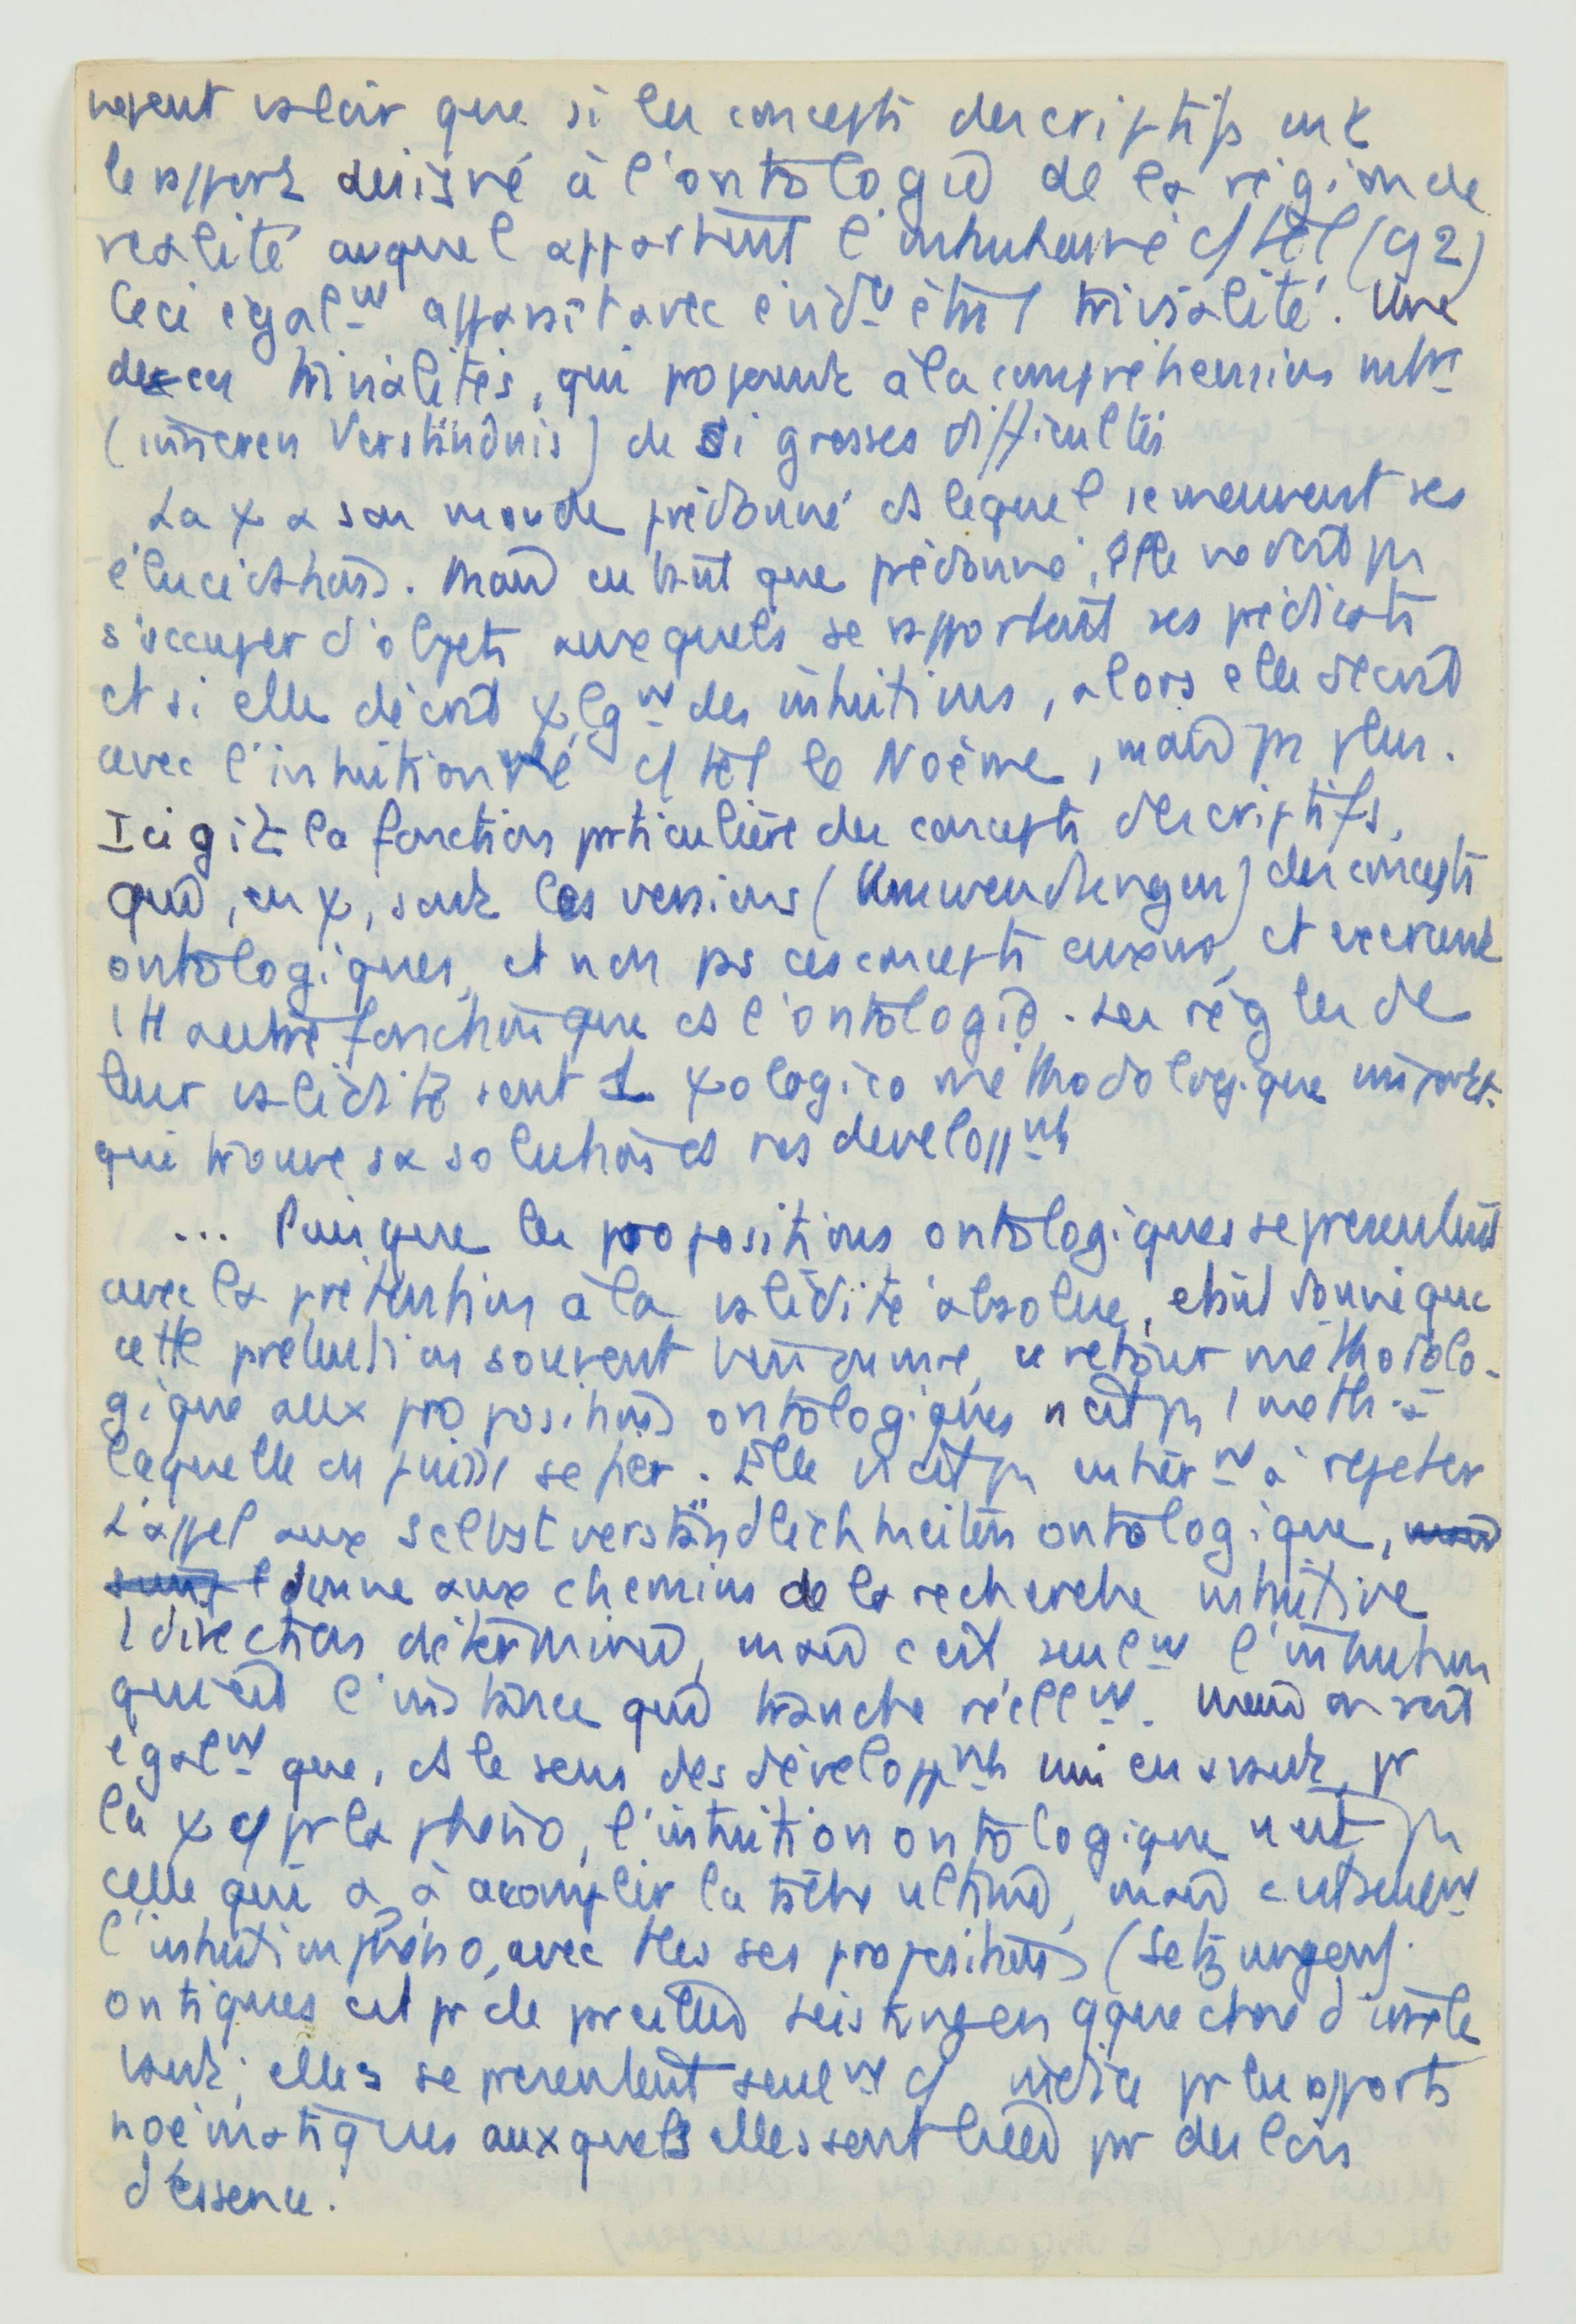 valoir que si les concepts descriptifs ont
le rapport désigné à l'ontologie de la région de
réalité auquel appartient l'intuitionné c/ tel (92)
Ceci égalnt apparaît avec évidnt être 1 trivialité. Une
de ces trivialités, qui posent à la compréhension
(inneren Verständnis) de si grosses difficultés
La χ a son monde prédonné ds lequel se meuvent ses
élucidations. Mais en tant que prédonné, elle ne doit ps
s'occuper d'objets auxquels se rapportent ses prédicats
et si elle décrit χlgnt des intuitions, alors elle décrit
avec l'intuitionné c/ tel le Noème, mais ps plus.
Ici gît la fonction prticulière des concepts descriptifs,
qui, en χ, sont les versions (Umwendungen) des concepts
ontologiques, et non ps ces concepts et
1 tt autre fonction que ds l'ontologie. Les règles de
leur validité sont 1 χologico méthodologique
qui trouve sa solution ds nos développnts
... Puisque les propositions ontologiques se présentent
avec la prétention à la validité absolue, étant donné que
cette prétention souvent ce retour méthodolo-
gique aux propositions ontologiques n'est ps 1 méth. à
laquelle on puisse se fier. Elle n'est ps à rejeter
L'appel aux Selbstverständlichkeiten ontologique,
donne aux chemins de la recherche intuitive
1 direction déterminée, mais c'est seulnt l'intuition
qui est l'instance qui tranche réellnt. Mais on voit
égalnt que, ds le sens des développnts mis en avant, pr
la χ c/ pr la phéno, l'intuition ontologique n'est ps
celle qui a à accomplir la tâche ultime, mais c'est seulnt
l'intuition phéno, avec ttes ses propositions (Setzungen)
ontiques est pr de pareilles Leistungen qque chose
elles se présentent seulnt c/ indice pr les rapports
noématiques auxquels elles sont liées pr des lois
d'essence.